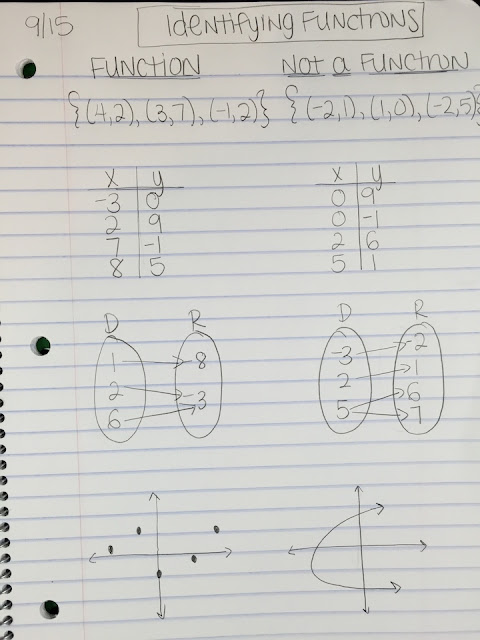 9/15
Identifying Functions
FUNCTION
Not a Function
{(4,2), (3,7), (-1,2)}
{(-2,1), (1,0), (-2,5)}
x y
-3 0
2 9
7 -1
8 5
x y
0 9
0 -1
2 6
5 1
D R
1 -8
2 -3
6
D R
-3 -2
2 1
5 6
7